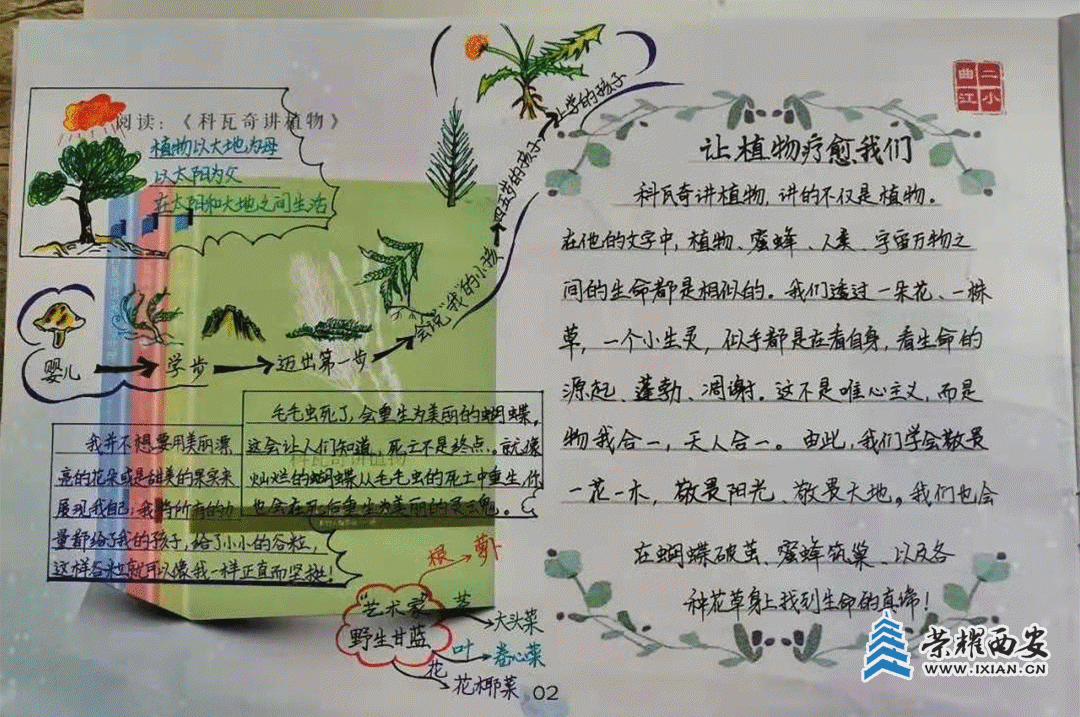 阅读：《科瓦奇讲植物》
植物以大地为母
以太阳为父
在太阳和大地之间生活
婴儿
学步
迈出第一步
会说“我”的小孩
四五岁的孩子
上学的孩子
毛毛虫死了，会重生为美丽的蝴蝶，
这会让人们知道，死亡不是终点。就像
灿烂的蝴蝶从毛毛虫的死亡中重生，你
也会在死后重生为美丽的灵魂。
我并不想要用美丽漂
亮的花朵或是甜美的果实来
展现我自己；我将所有的力
量都给了我的孩子，给了小小的谷粒，
这样谷粒就可以像我一样正直而坚挺！
科瓦奇讲植物
“艺术家”
野生甘蓝
根
萝卜
茎
大头菜
叶
卷心菜
花
花椰菜
02
曲江二小
让植物疗愈我们
科瓦奇讲植物，讲的不仅是植物。
在他的文字中，植物、蜜蜂、人类、宇宙万物之
间的生命都是相似的。我们透过一朵花、一株
草，一个小生灵，似乎都是在看自身，看生命的
源起、蓬勃、凋谢。这不是唯心主义，而是
物我合一，天人合一。由此，我们学会敬畏
一花一木，敬畏阳光，敬畏大地。我们也会
在蝴蝶破茧、蜜蜂筑巢、以及各
种花草身上找到生命的真谛！
荣耀西安
WWW.IXIAN.CN